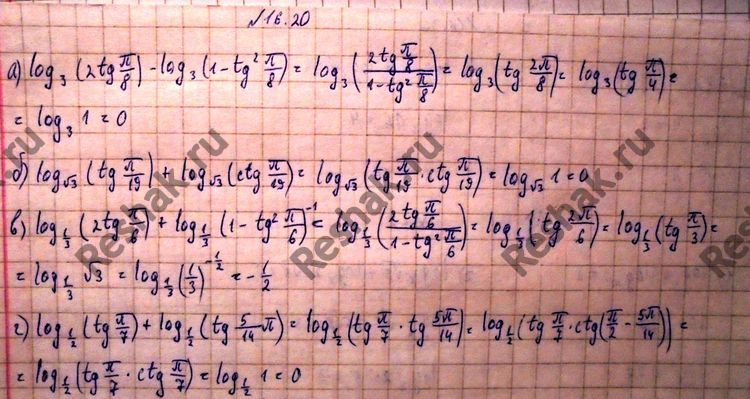 №16.20
а) log₃(2tg π/8) - log₃(1-tg² π/8) = log₃(2tg π/8 / 1-tg² π/8) = log₃(tg 2π/8) = log₃(tg π/4) =
= log₃ 1 = 0
б) log_√3 (tg π/19) + log_√3 (ctg π/19) = log_√3 (tg π/19 · ctg π/19) = log_√3 1 = 0
в) log_1/3 (2tg π/6) + log_1/3 (1-tg² π/6)⁻¹ = log_1/3 (2tg π/6 / 1-tg² π/6) = log_1/3 (tg 2π/6) = log_1/3 (tg π/3) =
= log_1/3 √3 = log_1/3 (1/3)^(-1/2) = -1/2
г) log_1/2 (tg π/7) + log_1/2 (tg 5/14 π) = log_1/2 (tg π/7 · tg 5π/14) = log_1/2 (tg π/7 · ctg(π/2 - 5π/14)) =
= log_1/2 (tg π/7 · ctg π/7) = log_1/2 1 = 0
Reshak.ru
Reshak.ru
Reshak.ru
Reshak.ru
Reshak.ru
Reshak.ru